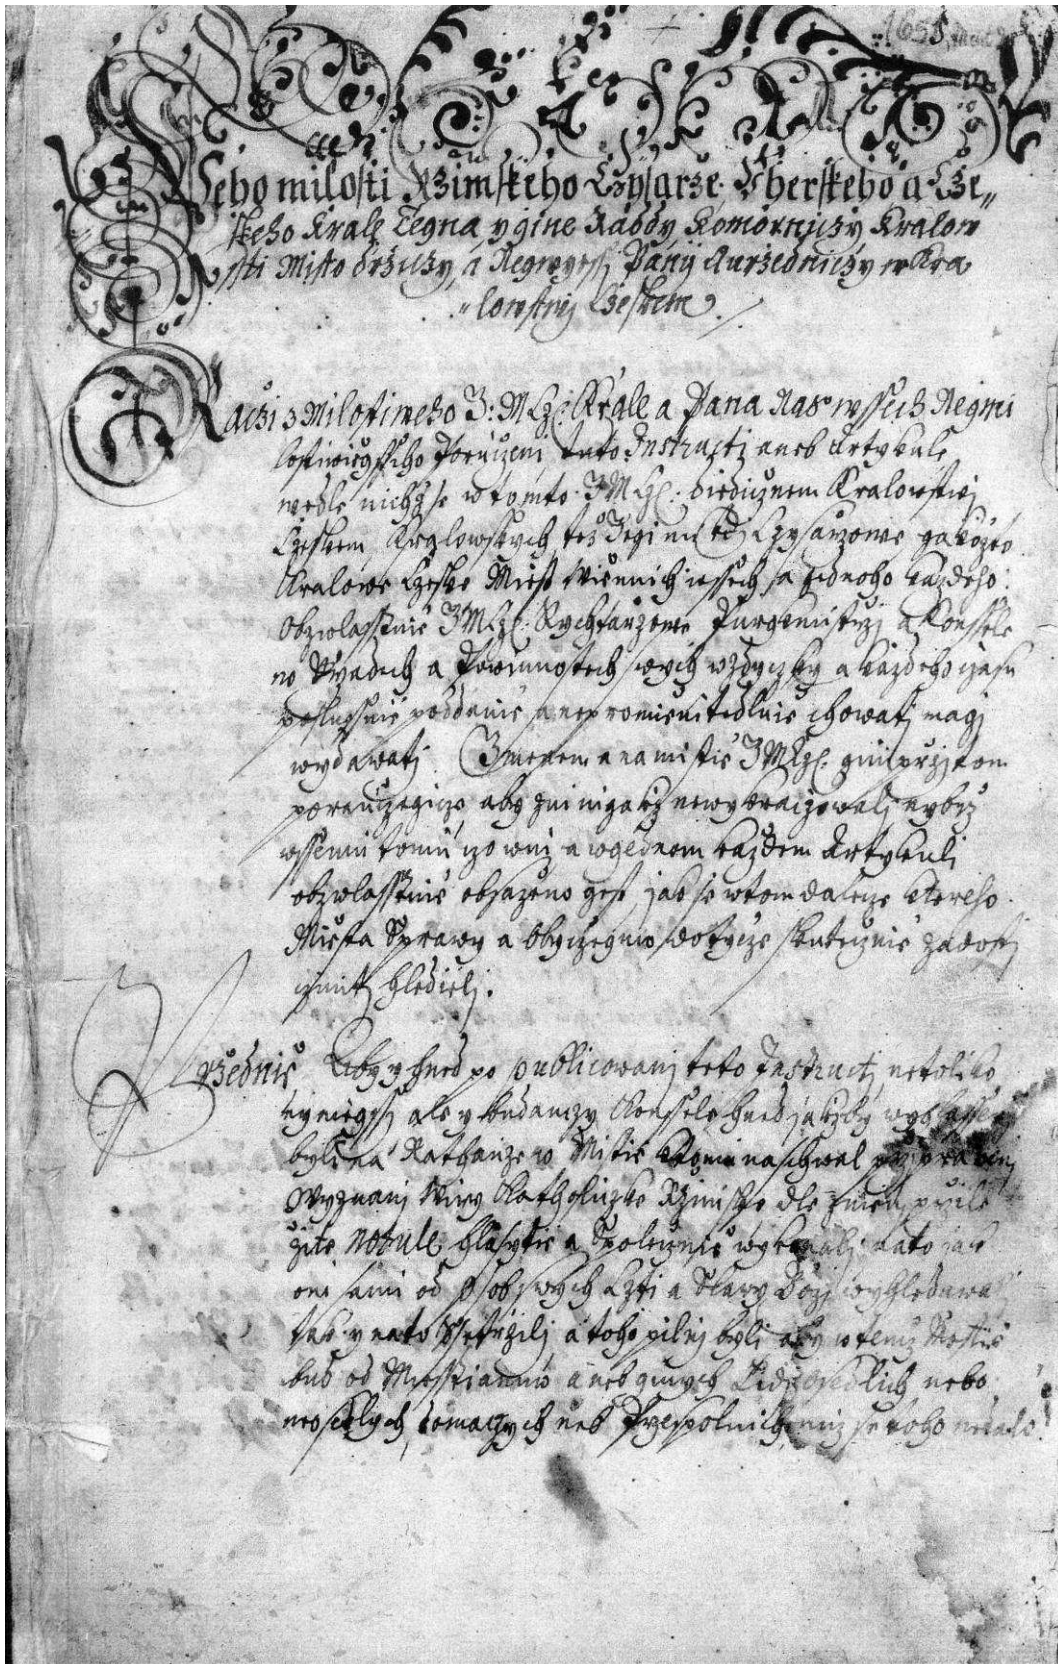 1651
Jeho milosti Rzimskeho Czysarze Uherskeho a Cze„
skeho Krale Tegna y gine Raddy Komorniczy Kralow
sti Misto držiczy, a Neywyssi Panij Aurzedniczy w Kra
„lowstwij Czeskem.
Raczi z Milostiweho J: M Cz: Krale a Pana Nas wssech Neymi
lostiwiegssiho Poruczeni tuto Instructi aneb Artykule
wedle nichž se w tomto J M Cz: diedicznem Kralowstwij
Czeskem Kralowskych též Jegi Czysarzowe gakožto
Kralowe Czeske Miest Wiennich wssech, a gednoho každeho
obzwlasstnie J M Cz: Rychtarzowe Purgkmistrzi a Konssele
w Auradich a Powinnostech swych wždyczky a každeho czasu
poslussnie poddanie a nepromienitedlnie chowati magj
wydawati. Jmenem a na mistie J M Cz: gim przitom
porauczegicze, aby z ni nigakz newykraczowali nybrz
wssemu tomu czo w ni a w gednom každem Artykuli
obzwlasstnie obsaženo gest, jak se w tom dalcze ktereho
Miesta Sprawy a Obyczeguw dotycze skutecznie zadosti
cziniti hledieli.
Przednie Aby y hned po publicowani teto Instructi netoliko
nyniegssi ale y budauczy Konssele hned jakžby wyhlasseni
byli na Rathauze w Mistie k tomu naschwal
Wyznani Wiry Katholiczke Rzimske dle
žite Notule hlasytie a Spolecznie wykonali, a to jak
oni sami od osob swych Czti a Slawy Boži wyhledawa
tak y na to ssetrzili, a toho pilni byli aby w temž Mestie
bud od Miesstianuw aneb ginych Lidi osedlich nebo
neosedlych, domaczych neb Przespolnich nicz se toho nedalo